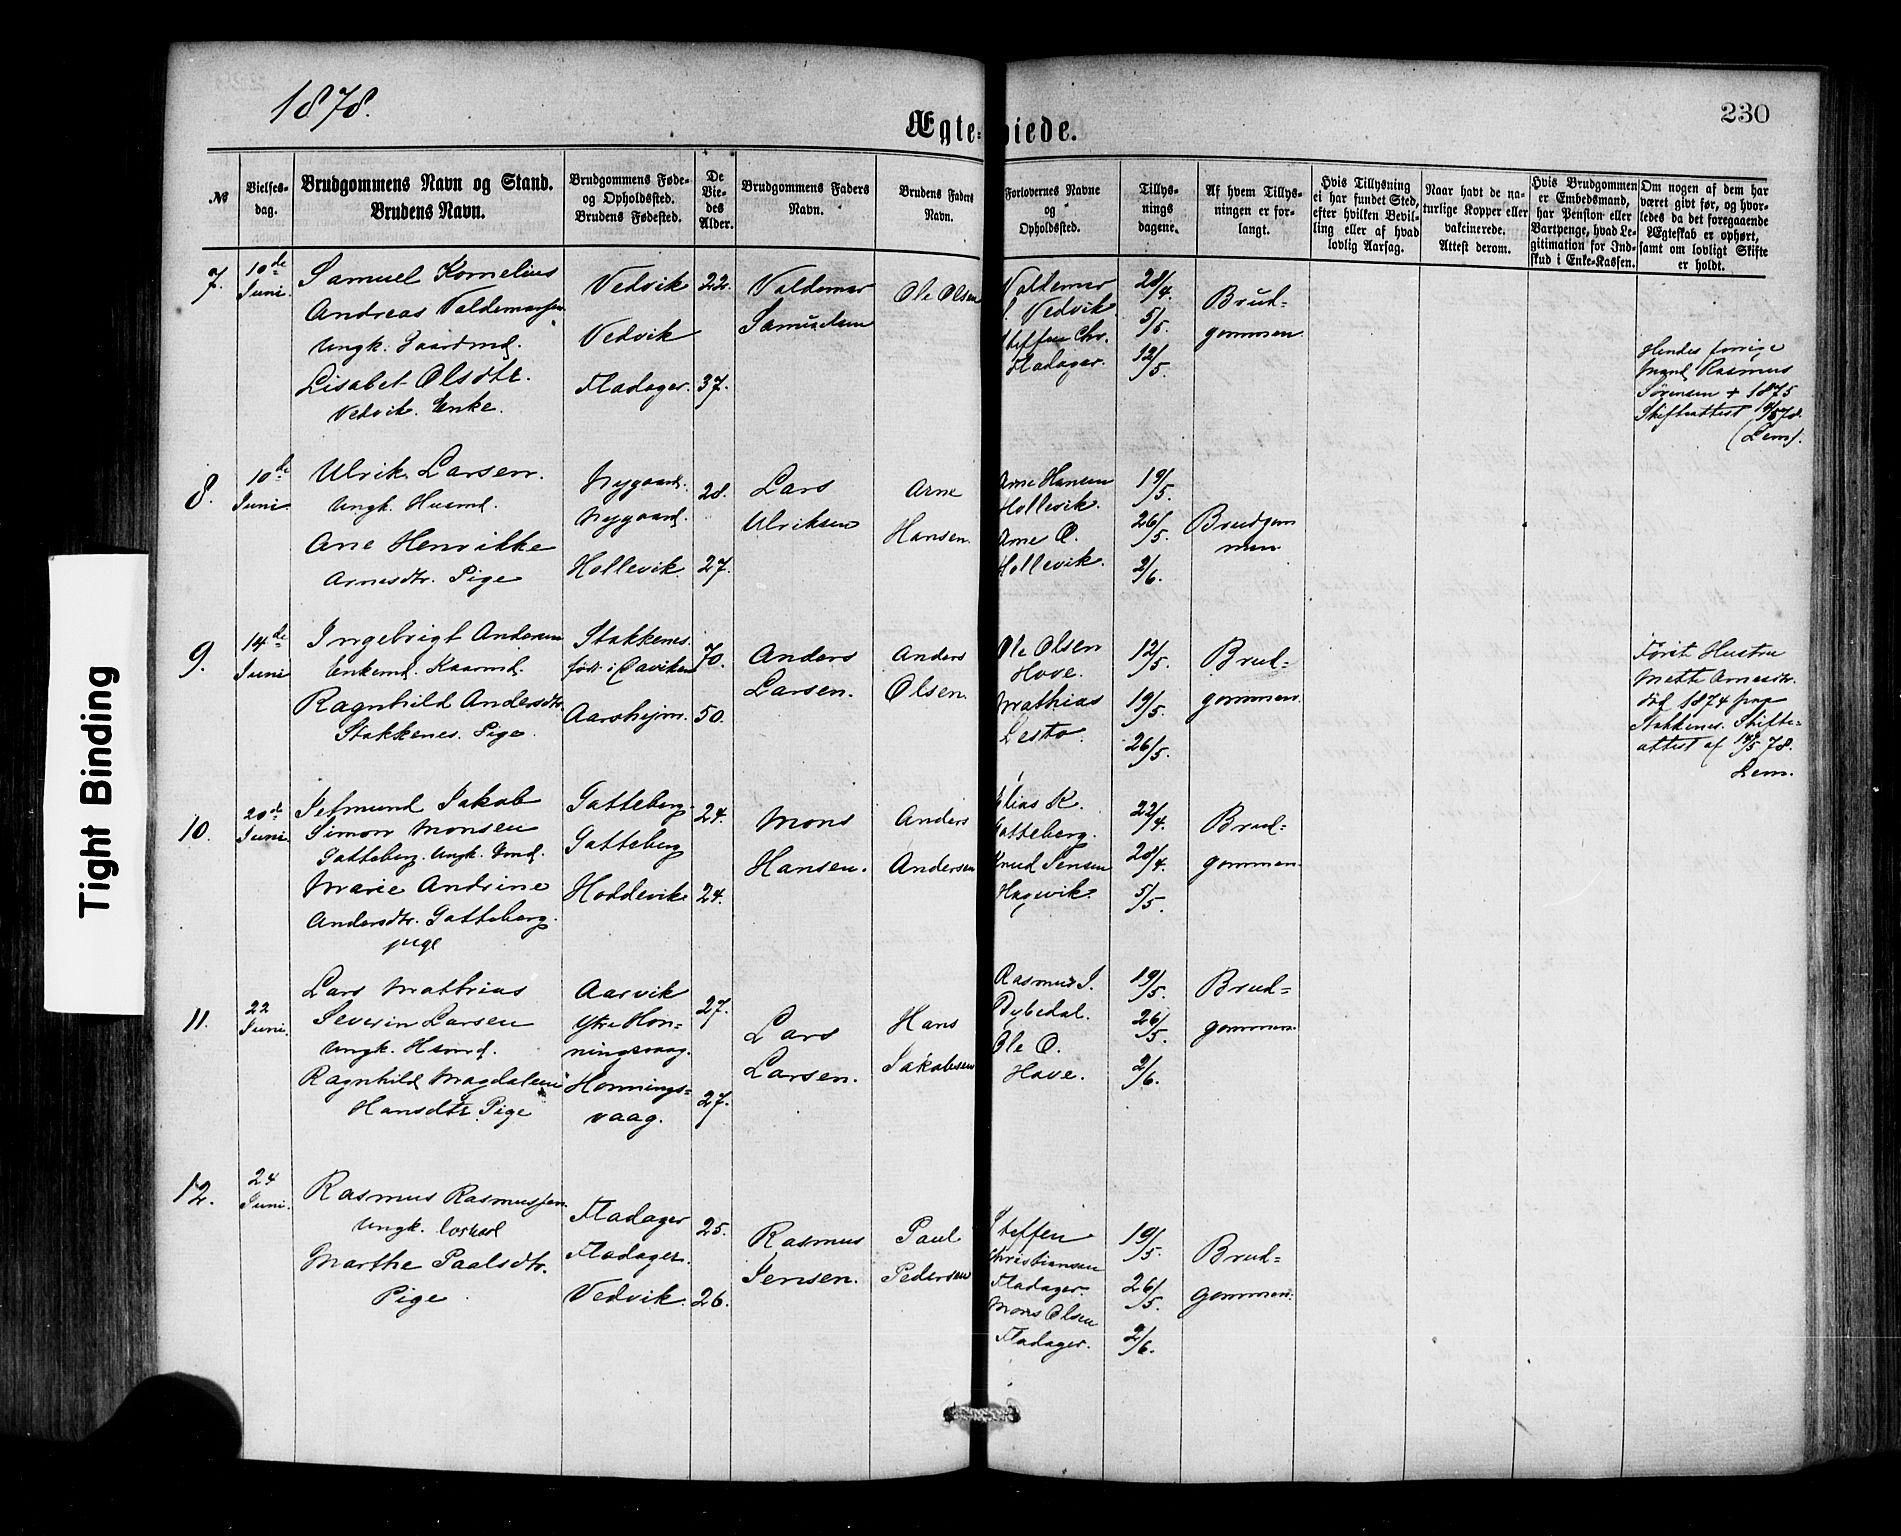 1878.
230
Ægte-viede.
Tight Binding
№
Vielses-
dag.
Brudgommens Navn og Stand.
Brudens Navn.
Brudgommens Føde-
og Opholdssted.
Brudens Fødested.
De
Vie-
des
Alder.
Brudgommens Faders
Navn.
Brudens Faders
Navn.
Forlovernes Navne
og
Opholdssted.
Tillys-
nings
dagene.
Af hvem Tillys-
ningen er for-
langt.
Hvis Tillysning
ei har fundet Sted,
efter hvilken Bevil-
ling eller af hvad
lovlig Aarsag.
Naar havt de na-
turlige Kopper eller
vakcinerede.
Attest derom.
Hvis Brudgommen
er Embedsmand,
har Pension eller
Vartpenge, hvad Le-
gitimation for Ind-
skud i Enke-Kassen.
Om nogen af dem har
været givt før, og hvor-
ledes da det foregaaende
Ægteskab er ophørt,
samt om lovligt Skifte
er holdt.
7.
10de
Juni.
Samuel Kornelius
Andreas Valdemarsen
Ungk. Gaardmd.
Lisabet Olsdtr.
Vedvik. Enke.
Vedvik
Vedvik
Fladager.
22.
37.
Valdemar
Samuelsen
Ole Olsen
Valdemar
S. Vedvik
Steffen Chr.
Fladager.
28/4.
5/5.
12/5.
Brud-
gommen.
Hendes forrige
Mand Rasmus
Sørensen + 1875
Skifteattest 14/5 78.
(Lem).
8.
10de
Juni
Ulrik Larsen.
Ungk. Husmd.
Ane Henrikke
Arnesdtr. Pige
Nygaard.
Nygaard.
Hollevik.
28.
27.
Lars
Ulriksen
Arne
Hansen.
Arne Hansen
Hollevik.
Arne O.
Hollevik.
19/5.
26/5.
2/6.
Brudgom
men.
9.
14de
Juni
Ingebrigt Andersen
Enkemd. Kaarmd.
Ragnhild Andersdtr.
Stokkenes. Pige.
Stokkenes.
født i Daviken
Aarsheim.
70.
50.
Anders
Larsen.
Anders
Olsen.
Ole Olsen
Hove.
Mathias
Lesto.
12/5.
19/5.
26/5.
Brud-
gommen.
Først Hustru
Mette Arnesdtr.
død 1874 paa
Stokkenes. Skifte-
attest af 14/5 78.
Lem.
10.
20de
Juni.
Jetmund Jakob
Simon Monsen
Gotteberg. Ungk. Gmd.
Marie Andrine
Andersdtr. Gotteberg.
pige
Gotteberg.
Gotteberg
Hoddevik
24.
24.
Mons
Hansen.
Anders
Andersen
Elias K.
Gotteberg.
Knud Jensen
Hagevik.
22/4.
28/4.
5/5.
Brud-
gommen.
11.
22
Juni.
Lars Mathias
Severin Larsen
Ungk. Husmd.
Ragnhild Magdalene
Hansdtr. Pige
Aarvik
Ytre Hon-
ningsvaag.
Honnings-
vaag.
27.
27.
Lars
Larsen.
Hans
Jakobsen
Rasmus J.
Dybedal.
Ole O.
Hove.
19/5.
26/5.
2/6.
Brud-
gommen.
12.
24
Juni.
Rasmus Rasmussen.
Ungk.
Marthe Paalsdtr.
Pige
Fladager
Fladager.
Vedvik.
25.
26.
Rasmus
Jensen.
Paul
Pedersen
Steffen
Christiansen
Fladager.
Mons Olsen
Fladager.
19/5.
26/5.
2/6.
Brud-
gommen.